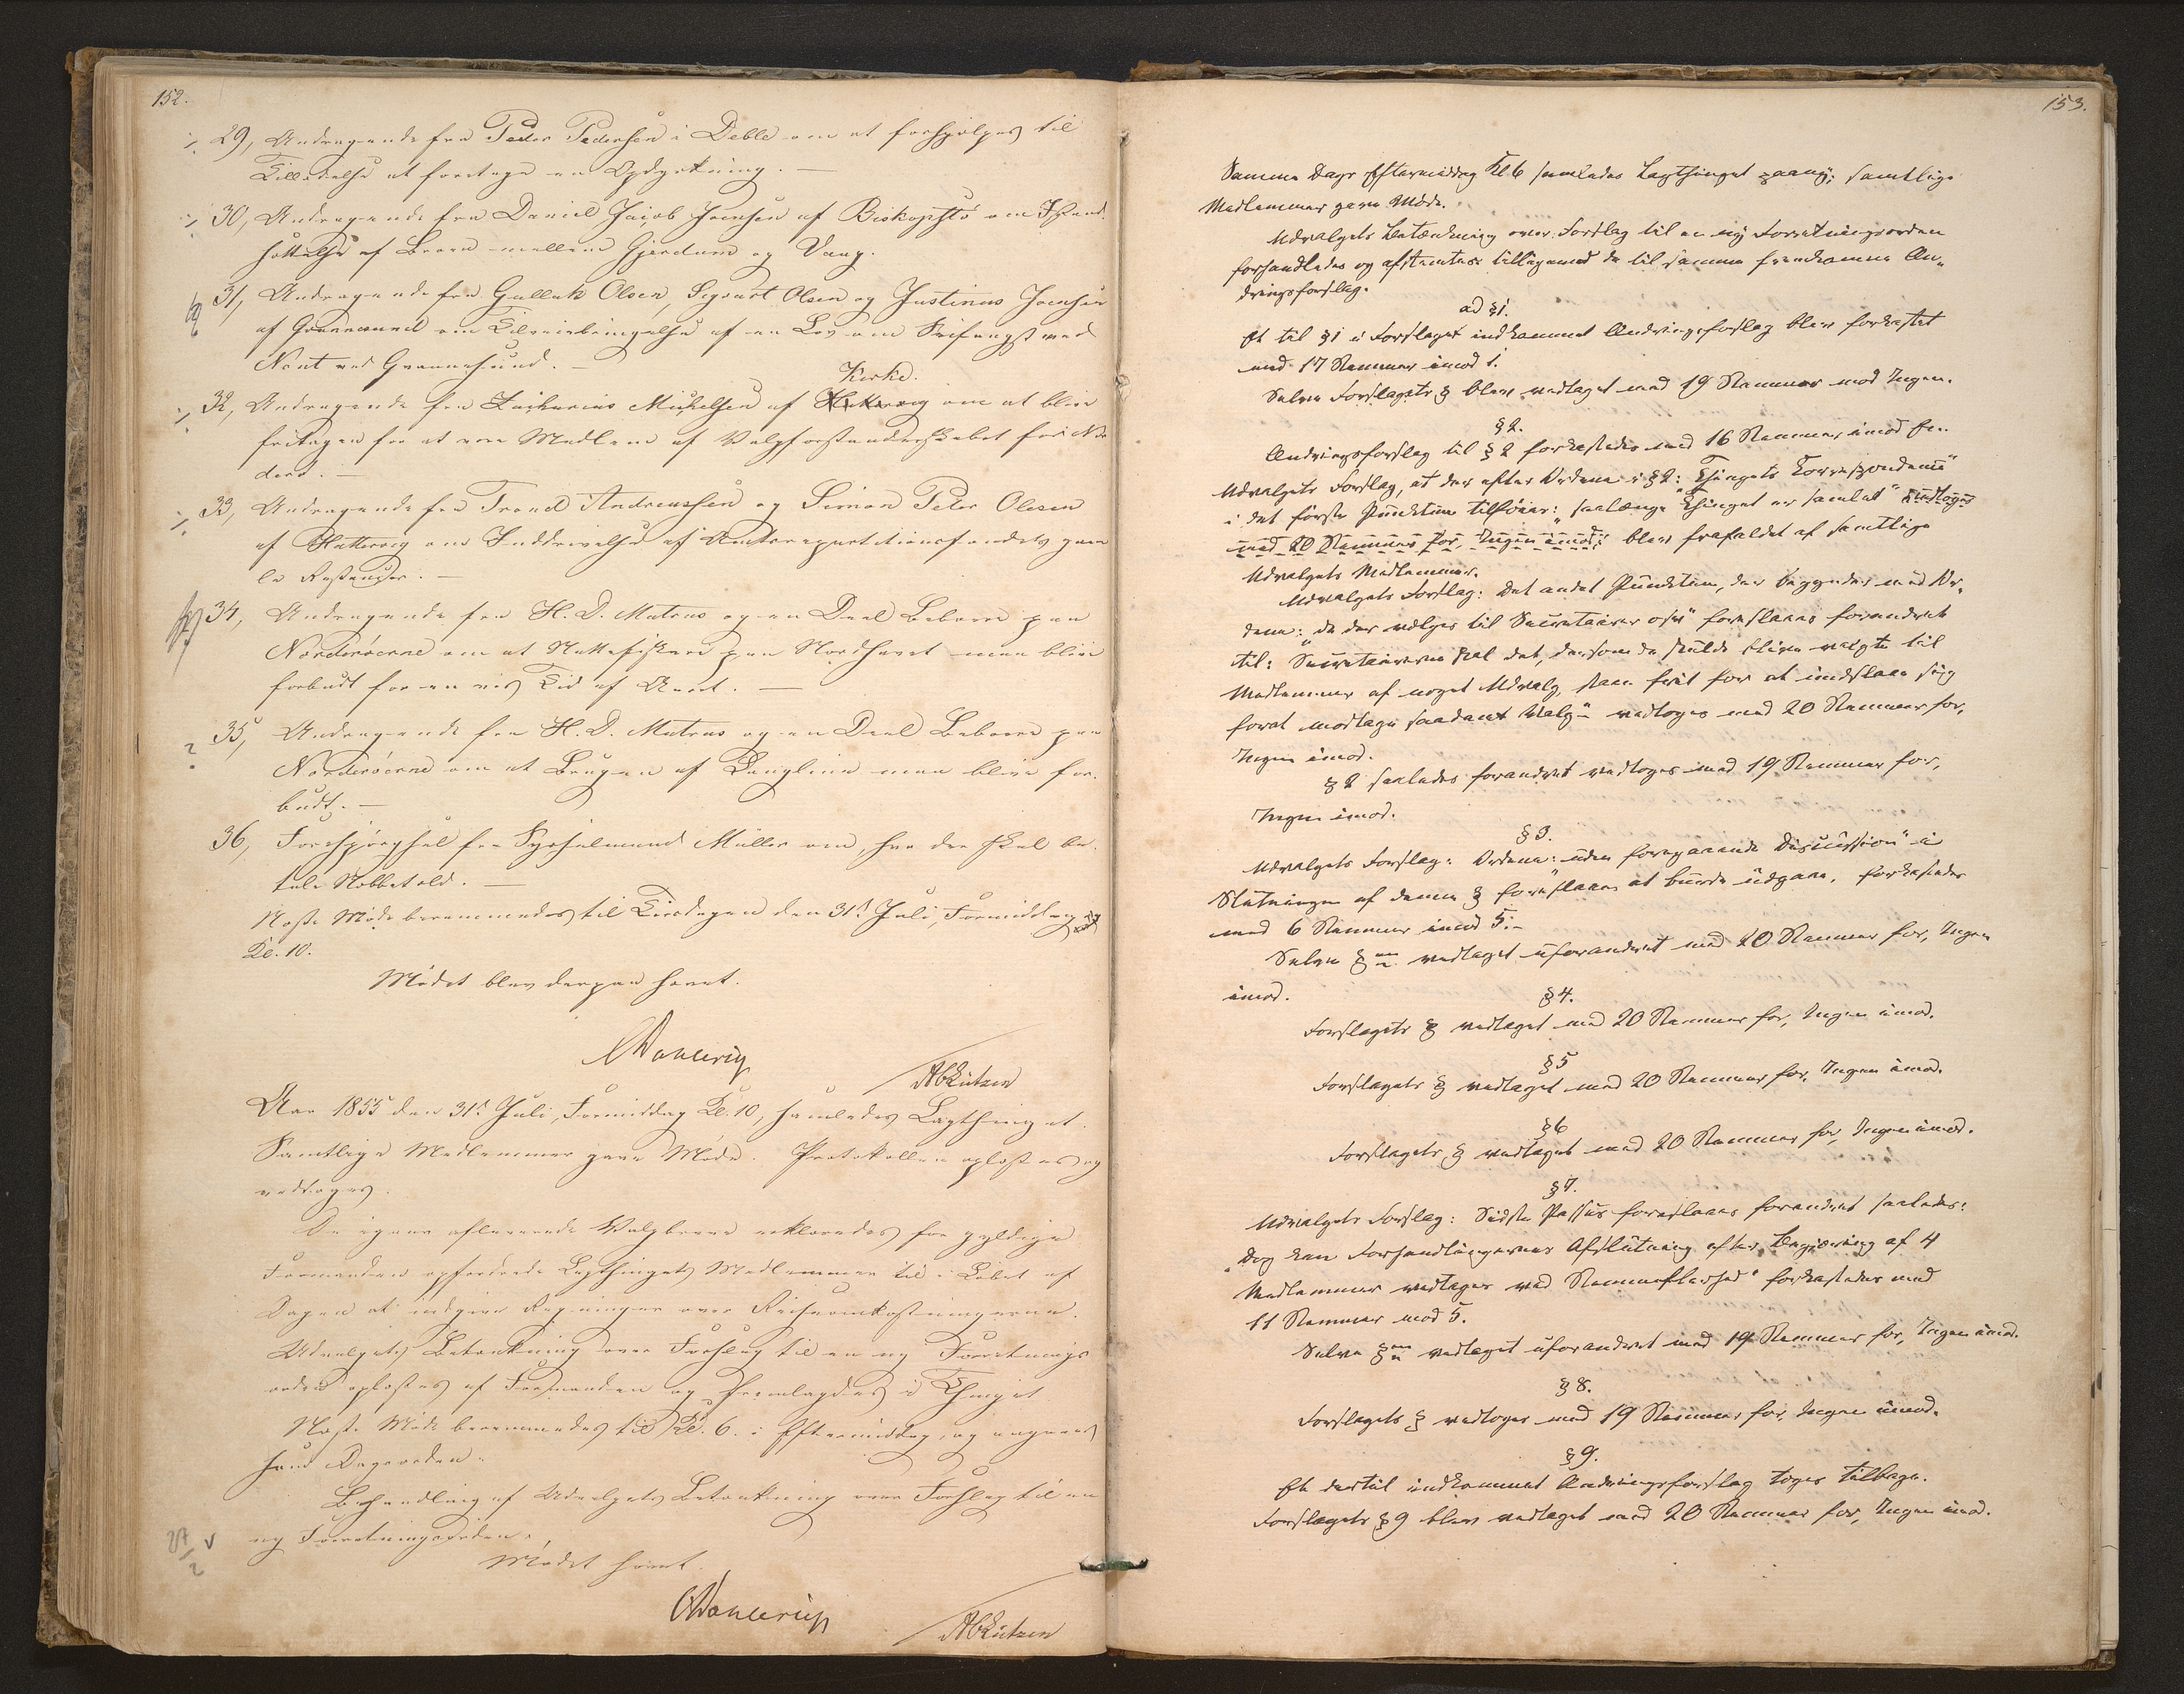 152.
29, Andragende fra Peder Pedersen i Deble om at forhjælpes til
Tilladelse at foretage en Opdyrkning. —
30, Andragende fra Daniel Jacob Joensen af Biskopstø om Istand-
sættelse af Broen mellem Gjerdum og Vaag.
31, Andragende fra Gullak Olsen, Sigvart Olsen og Justinus Joensen
af Gvannesund om Tilveiebringelse af en Lov om Seifangst med
Noet ved Gvannesund. —
Kirke.
32, Andragende fra Zacharias Mickelsen af Hattervig om at blive
fritagen for at være Medlem af Valgforstanderskabet for No
derø. —
33, Andragende fra Trond Andreassen og Simon Peter Olesen
af Hattervig om Inddrivelse af Amtsrepartitionsfondets gam
le Restancer. —
34, Andragende fra H. D. Matras og en Deel Beboere paa
Norderøerne om at Nattefiskeri paa Nordhavet maa blive
forbudt for en vis Tid af Aaret. —
35, Andragende fra H. D. Matras og en Deel Beboere paa
Norderøerne om at Brugen af Langline maa blive for-
budt. —
36, Forespørgsel fra Sysselmand Müller om, hvo der skal be-
tale Nebbetold. —
Næste Møde berammedes til Tirsdagen den 31te Juli, Formiddag
Kl. 10.
Mødet blev derpaa hævet.
CDahlerup
AbLützen
Aar 1855 den 31te Juli, Formiddag Kl. 10, samledes Lagthinget.
Samtlige Medlemmer gave Møde. Protokollen oplæstes og
vedtoges.
De igaar afleverede Valgbreve erklæredes for gyldige
Formanden opfordrede Lagthingets Medlemmer til i Løbet af
Dagen at indgive Regninger over Reiseomkostningerne.
Udvalgets Betænkning over Forslag til en ny Forretnings
orden oplæstes af Formanden og fremlagdes i Thinget
Næste Møde berammedes til Kl. 6. i Eftermiddag, og angaves
som Dagsorden.
Behandling af Udvalgets Betænkning over Forslag til en
ny Forretningsorden.
Mødet hævet.
CDahlerup
AbLützen
153.
Samme Dags Eftermiddag Kl 6 samledes Lagthinget paany; samtlige
Medlemmer gave Møde.
Udvalgets Betænkning over Forslag til en ny Forretningsorden
forhandledes og afstemtes tilligemed de til samme fremkomne Æn-
dringsforslag.
ad §1.
Et til §1 i Forslaget indkommet Ændringsforslag blev forkastet
med 17 Stemmer imod 1.
Selve Forslagets § blev vedtaget med 19 Stemmer mod Ingen.
§2.
Ændringsforslag til §2 forkastedes med 16 Stemmer imod En.
Udvalgets Forslag, at der efter Ordene i §2: "Thingets Correspondance"
i det første Punktum tilføies: "saalænge Thinget er samlet" vedtoges
med 20 Stemmer for, Ingen imod; blev frafaldet af samtlige
Udvalgets Medlemmer.
Udvalgets Forslag: Det andet Punktum, der begynder med Or-
dene: "de der vælges til Secretairer osv" foreslaaes forandret
til: "Secretairerne skal det, dersom de skulde blive valgte til
Medlemmer af noget Udvalg, staae frit for at undslaae sig
forat modtage saadant Valg" vedtoges med 20 Stemmer for,
Ingen imod.
§2 saaledes forandret vedtoges med 19 Stemmer for,
Ingen imod.
§3.
Udvalgets Forslag: Ordene: "uden foregaaende Discussion" i
Slutningen af denne § foreslaaes at burde udgaae, forkastedes
med 6 Stemmer imod 5.-
Selve §en vedtaget uforandret med 20 Stemmer for, Ingen
imod.
§4.
Forslagets § vedtaget med 20 Stemmer for, Ingen imod.
§5
Forslagets § vedtaget med 20 Stemmer for, Ingen imod.
§6
Forslagets § vedtaget med 20 Stemmer for, Ingen imod.
§7.
Udvalgets Forslag: Sidste Passus foreslaaes forandret saaledes:
"Dog kan Forhandlingernes Afslutning efter Begjæring af 4
Medlemmer vedtages ved Stemmefleerhed" forkastedes med
11 Stemmer mod 5.
Selve §en vedtaget uforandret med 19 Stemmer for, Ingen imod.
§8.
Forslagets § vedtoges med 19 Stemmer for, Ingen imod.
§9.
Et dertil indkommet Ændringsforslag toges tilbage.
Forslagets §9 blev vedtaget med 20 Stemmer for, Ingen imod.